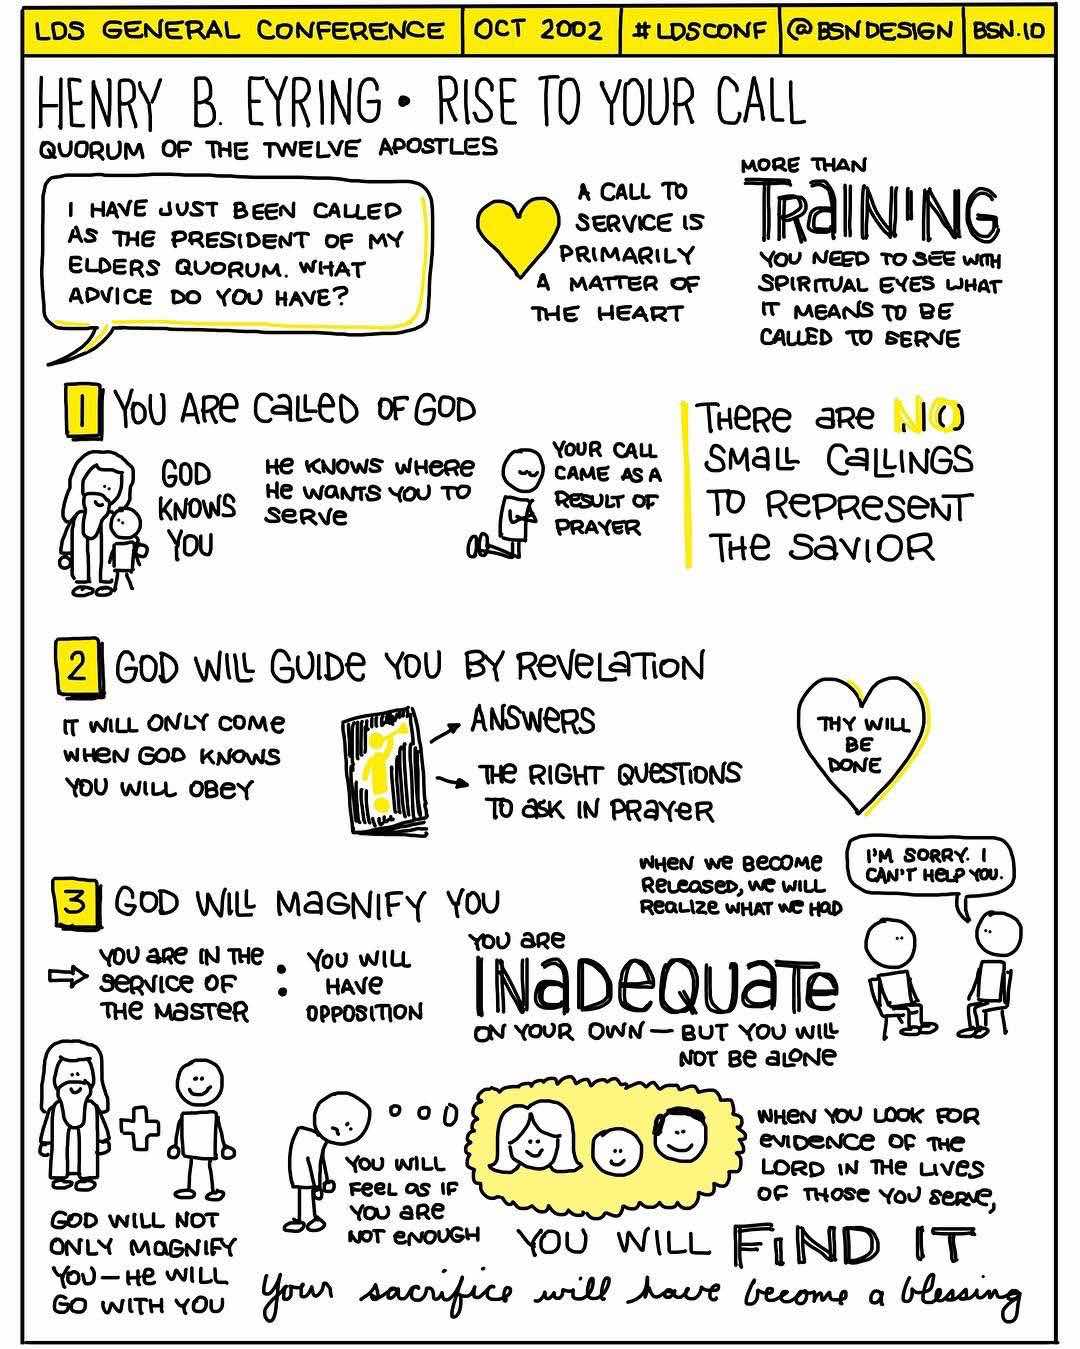 LDS GENERAL CONFERENCE
OCT 2002
#LDSCONF
@BSNDESIGN
BSN.IO
HENRY B. EYRING • RISE TO YOUR CALL
QUORUM OF THE TWELVE APOSTLES
I HAVE JUST BEEN CALLED
AS THE PRESIDENT OF MY
ELDERS QUORUM. WHAT
ADVICE DO YOU HAVE?
A CALL TO
SERVICE IS
PRIMARILY
A MATTER OF
THE HEART
MORE THAN
TRAINING
YOU NEED TO SEE WITH
SPIRITUAL EYES WHAT
IT MEANS TO BE
CALLED TO SERVE
1 YOU ARE CALLED OF GOD
GOD
KNOWS
YOU
HE KNOWS WHERE
HE WANTS YOU TO
SERVE
YOUR CALL
CAME AS A
RESULT OF
PRAYER
THERE ARE NO
SMALL CALLINGS
TO REPRESENT
THE SAVIOR
2 GOD WILL GUIDE YOU BY REVELATION
IT WILL ONLY COME
WHEN GOD KNOWS
YOU WILL OBEY
ANSWERS
THE RIGHT QUESTIONS
TO ASK IN PRAYER
THY WILL
BE
DONE
3 GOD WILL MAGNIFY YOU
YOU ARE IN THE
SERVICE OF
THE MASTER
:
YOU WILL
HAVE
OPPOSITION
WHEN WE BECOME
RELEASED, WE WILL
REALIZE WHAT WE HAD
I'M SORRY. I
CAN'T HELP YOU.
YOU ARE
INADEQUATE
ON YOUR OWN — BUT YOU WILL
NOT BE ALONE
GOD WILL NOT
ONLY MAGNIFY
YOU — HE WILL
GO WITH YOU
YOU WILL
FEEL AS IF
YOU ARE
NOT ENOUGH
WHEN YOU LOOK FOR
EVIDENCE OF THE
LORD IN THE LIVES
OF THOSE YOU SERVE,
YOU WILL FIND IT
Your sacrifice will have become a blessing